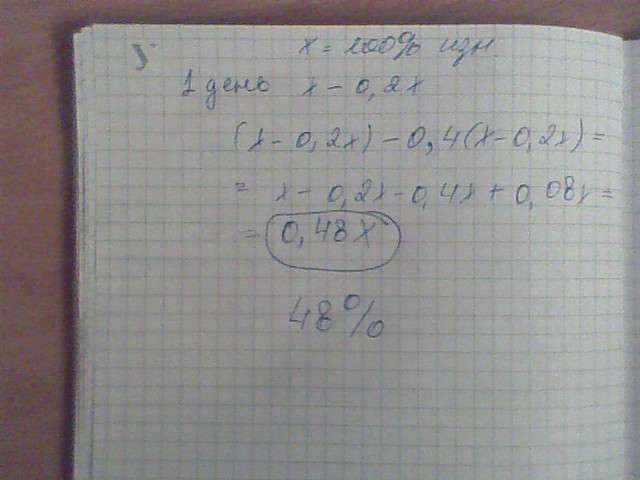 5
x = 100% изн.
1 день x - 0,2x
(x - 0,2x) - 0,4(x - 0,2x) =
= x - 0,2x - 0,4x + 0,08x =
= 0,48x
48%